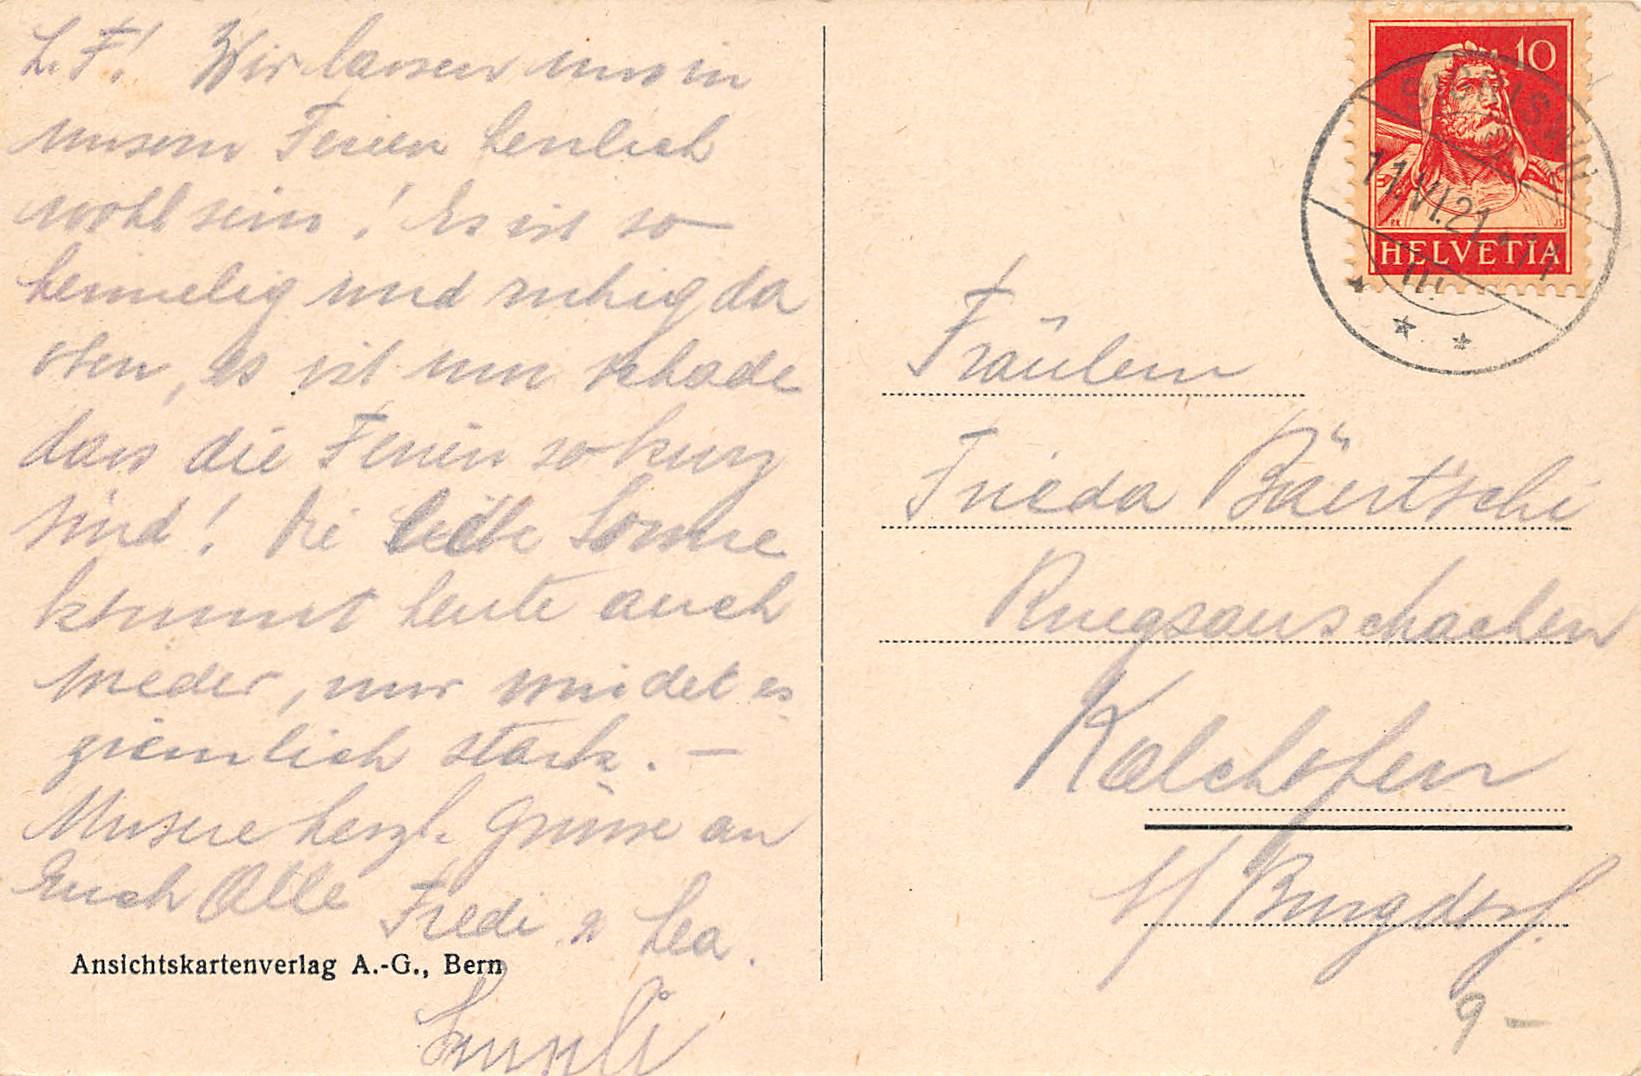 L. F! Wir lassen uns in
unsern Ferien herrlich
wohl sein! Es ist so
heimelig und ruhig da
oben, es ist nur schade
dass die Ferien so kurz
sind! Die liebe Sonne
kommt heute auch
wieder, nur windet es
ziemlich stark. —
Unsere herzl. Grüsse an
Euch Alle Fredi u Lea.
Ansichtskartenverlag A.-G., Bern
10
11.VI.21
HELVETIA
Fräulein
Frieda Bärtschi
Ruegsauschachen
Kalchofen
b/ Burgdorf.
9 —